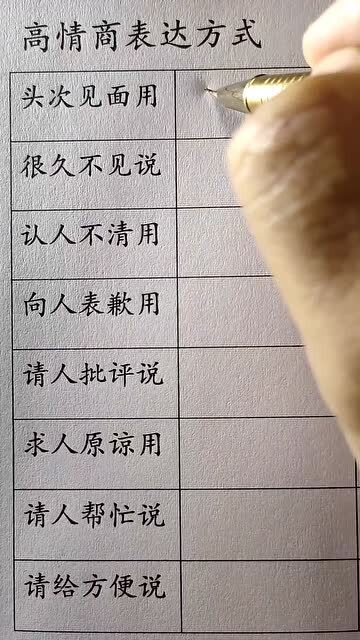 高情商表达方式
头次见面用
很久不见说
认人不清用
向人表歉用
请人批评说
求人原谅用
请人帮忙说
请给方便说